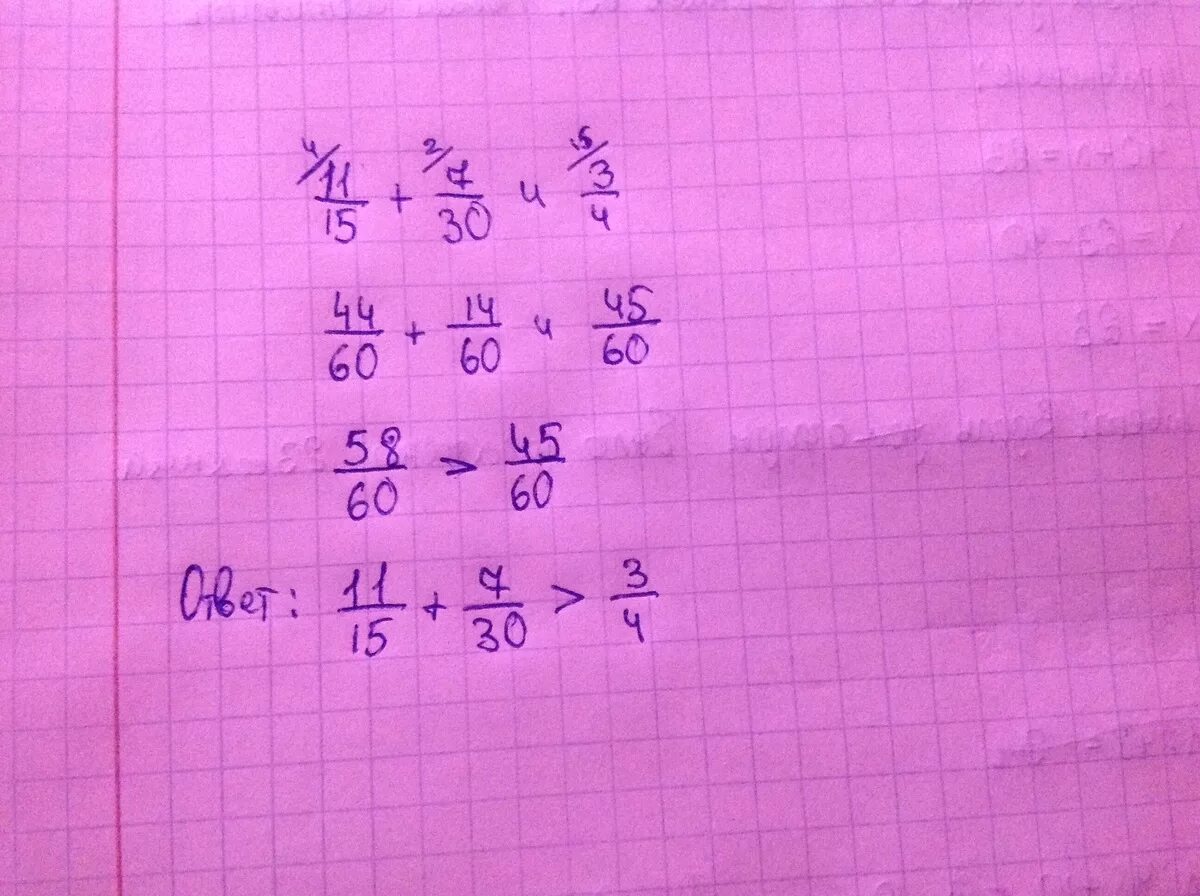 4/ 11/15 + 2/ 7/30 и 15/ 3/4
44/60 + 14/60 и 45/60
58/60 > 45/60
Ответ: 11/15 + 7/30 > 3/4